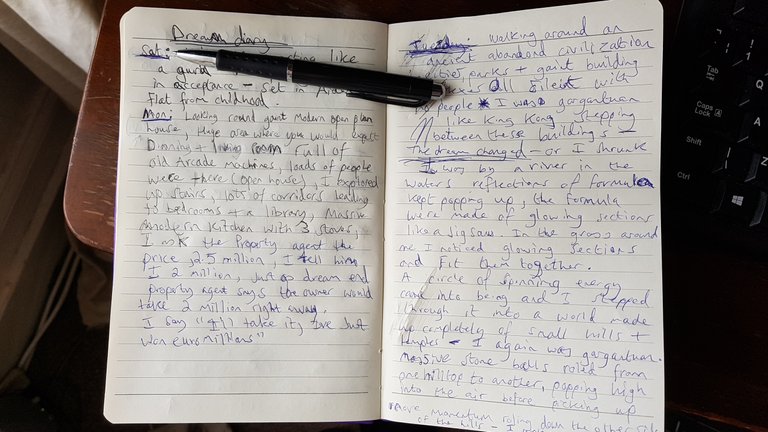 Dream diary
Sat: like
a guru
in acceptance - set in
Flat from childhood.
Mon: Looking round giant modern open plan
house, Huge area where you would expect
Dinning + living room full of
old Arcade machines, loads of people
were there (open house), I explored
up stairs, lots of corriders leading
to bedrooms + a library, Massive
modern kitchen with 3 stoves,
I ask the Property agent the
price, 2.5 million, I tell him
I 2 million, just as dream end
property agent says the owner would
take 2 million right away,
I say "I'll take it, I've Just
won euromillions"
Tuesday: Walking around an
ancient abandond civilization
cities parks + gaint building
all silent with
no people I was gargantuan
like King Kong stepping
between these buildings -
The dream changed - or I shrunk
I was by a river in the
waters reflections of formula
kept popping up, the formula
were made of glowing sections
like a jigsaw. In the grass around
me I noticed glowing sections
and Fit them together.
A circle of spinning energy
came into being and I stepped
through it into a world made
up completely of small hills +
temples - I again was gargantuan.
Massive stone balls roled from
one hilltop to another, popping high
into the air before picking up
more momentum roling down the other side
of the hills - I
Tab
Caps Lock
Shift
Ctrl